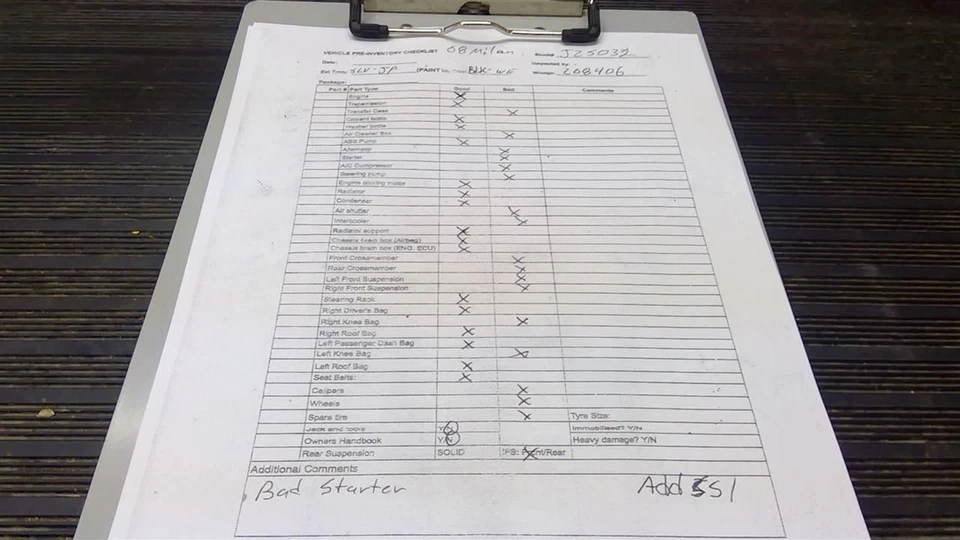 VEHICLE PRE-INVENTORY CHECKLIST 08 Milan Stock# J25032
Date: Inspected by:
Ext Trim: SLV-JP (PAINT Int. Trim: BLK-WF Mileage: 208406
Package:
Part # Part Type Good Bad Comments
Engine X
Transmission X
Transfer Case X
Coolant bottle X
Washer bottle X
Air Cleaner Box X
ABS Pump X
Alternator X
Starter X
A/C Compressor X
Steering pump X
Engine cooling motor X
Radiator X
Condenser X
Air shutter X
Intercooler X
Radiator support X
Chassis brain box (Airbag) X
Chassis brain box (ENG. ECU) X
Front Crossmember X
Rear Crossmember X
Left Front Suspension X
Right Front Suspension X
Steering Rack X
Right Driver's Bag X
Right Knee Bag X
Right Roof Bag X
Left Passenger Dash Bag X
Left Knee Bag X
Left Roof Bag X
Seat Belts: X
Calipers X
Wheels X
Spare tire X Tyre Size:
Jack and tools Y/N Immobilised? Y/N
Owners Handbook Y/N Heavy damage? Y/N
Rear Suspension SOLID IFS: Front/Rear
Additional Comments
Bad Starter Add SS1